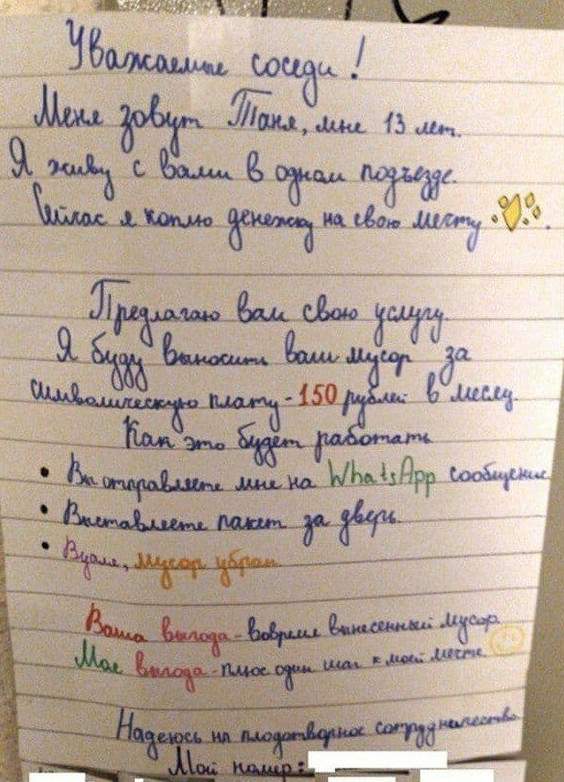 Уважаемые соседи!
Меня зовут Таня, мне 13 лет.
Я живу с вами в одном подъезде.
Сейчас я коплю денежку на свою мечту.
Предлагаю вам свою услугу.
Я буду выносить ваш мусор за
символическую плату - 150 рублей в месяц.
Как это будет работать
• Вы отправляете мне на WhatsApp сообщение
• Выставляете пакет за дверь.
• Вуаля, мусор убран
Ваша выгода - вовремя вынесенный мусор.
Моя выгода - плюс один шаг к моей мечте
Надеюсь на плодотворное сотрудничество.
Мой номер: